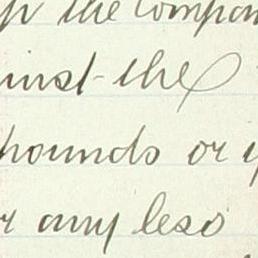 the compan
inst the
pounds or y
r any less